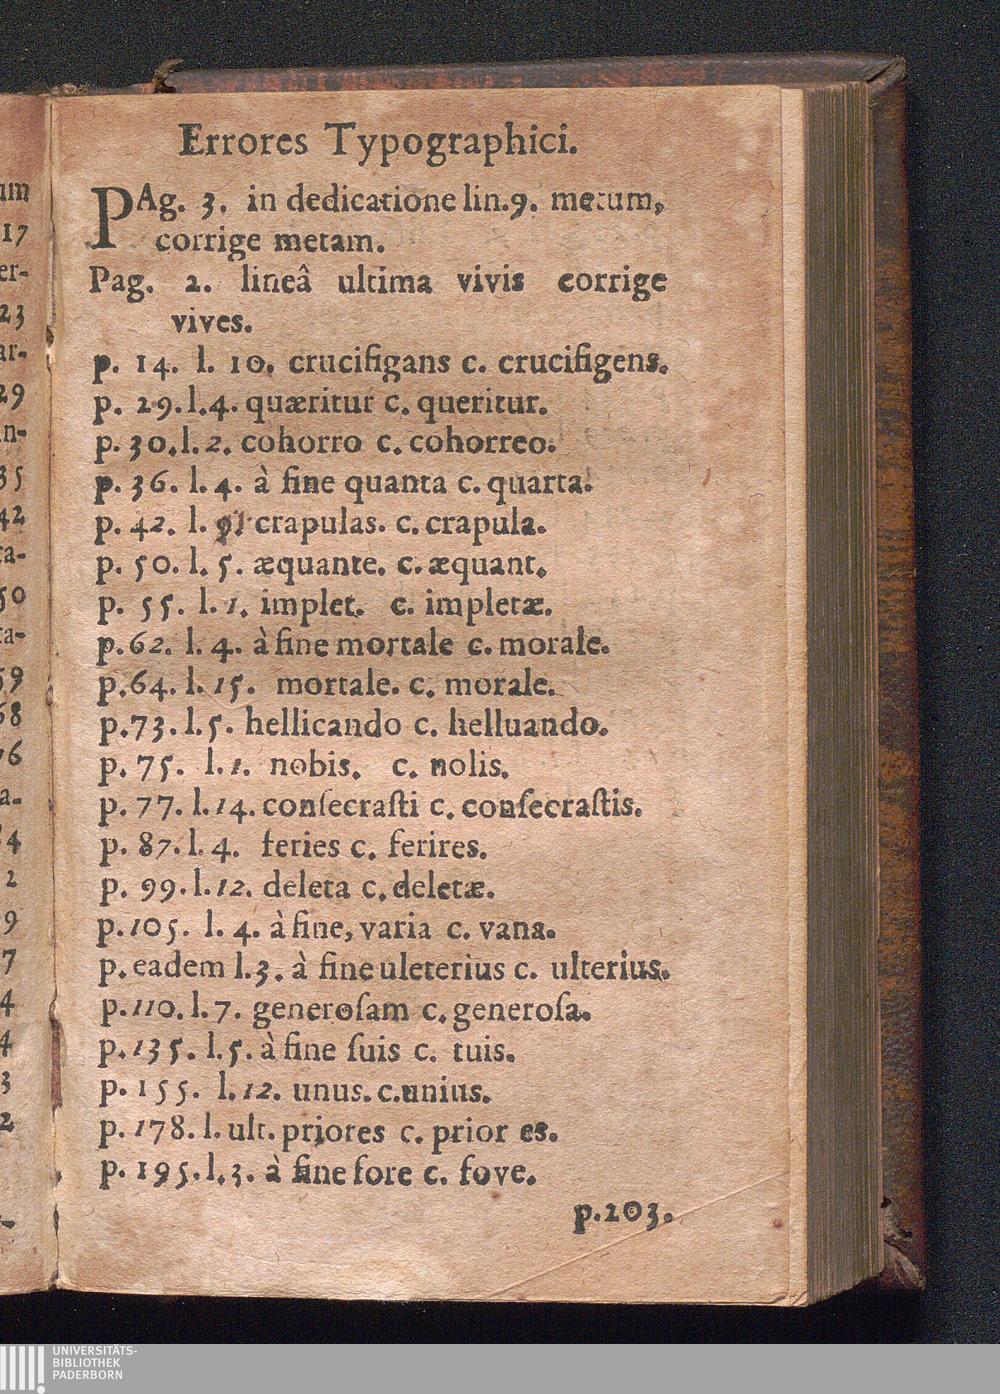 Errores Typographici.
PAg. 3. in dedicatione lin.9. metum,
corrige metam.
Pag. 2. lineâ ultima vivis corrige
vives.
p. 14. l. 10. crucifigans c. crucifigens.
p. 29. l.4. quæritur c. queritur.
p. 30. l. 2. cohorro c. cohorreo.
p. 36. l. 4. à fine quanta c. quarta.
p. 42. l. crapulas. c. crapula.
p. 50. l. 5. æquante. c. æquant.
p. 55. l. 1. implet. c. impletæ.
p. 62. l. 4. à fine mortale c. morale.
p. 64. l. 15. mortale. c. morale.
p. 73. l. 5. hellicando c. helluando.
p. 75. l. 1. nobis. c. nolis.
p. 77. l. 14. conſecraſti c. conſecraſtis.
p. 87. l. 4. feries c. ferires.
p. 99. l. 12. deleta c. deletæ.
p. 105. l. 4. à fine, varia c. vana.
p. eadem l. 3. à fine uleterius c. ulterius.
p. 110. l. 7. generoſam c. generoſa.
p. 135. l. 5. à fine ſuis c. tuis.
p. 155. l. 12. unus. c. unius.
p. 178. l. ult. priores c. prior es.
p. 195. l. 3. à fine fore c. fove.
p. 203.
um
17
er-
23
ar-
29
n-
35
42
ta-
50
ta-
59
68
76
a-
4
2
9
7
4
4
3
2
UNIVERSITÄTS-
BIBLIOTHEK
PADERBORN